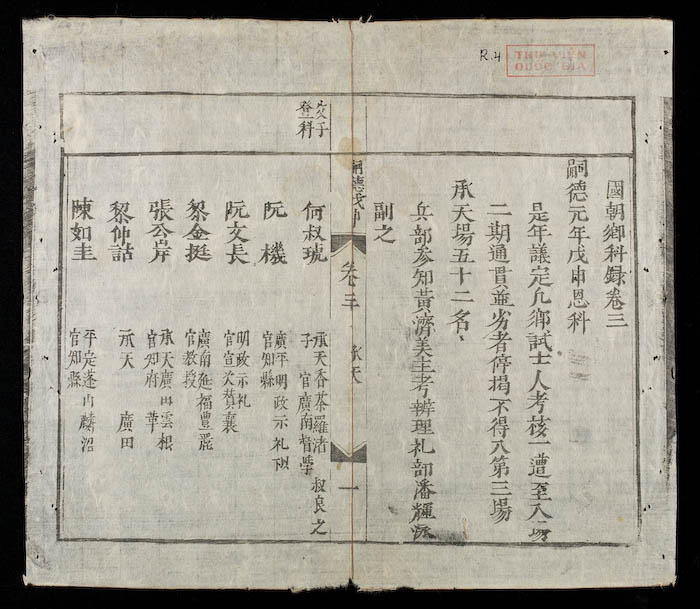 R.4
THƯ VIỆN
QUỐC GIA
國朝鄉科錄卷三
嗣德元年戊申恩科
是年議定凡鄉試士人考核一遭至入場
二期通貫並劣者停揭不得入第三場
承天場五十二名
兵部参知黃濟美主考辨理礼部潘輝泳
副之
嗣德戊申 卷三 承天 一
父子
登科
何叔琥
承天香茶羅渚 叔良之
子 官廣南督學
阮機
廣平明政示礼
官知縣
阮文長
明政示礼
贊襄
黎金挺
廣南延福豊
官教授
張公岸
承天廣田雲根
官知府
黎仲詁
承天 廣田
陳如圭
平定蓬山麟沼
官知縣